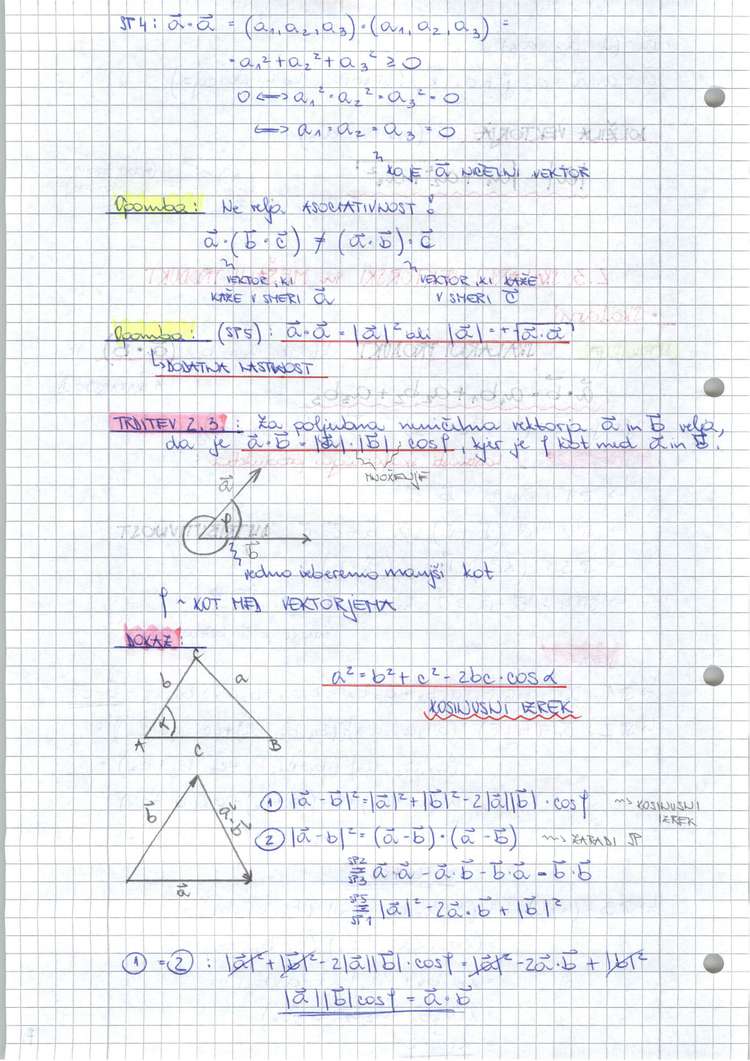 SP4: a⃗·a⃗ = (a₁,a₂,a₃)·(a₁,a₂,a₃) =
= a₁²+a₂²+a₃² ≥ 0
0 ⟺ a₁²=a₂²=a₃²=0
⟺ a₁=a₂=a₃=0
KO JE a⃗ NIČELNI VEKTOR
Opomba: Ne velja ASOCIATIVNOST!
a⃗·(b⃗·c⃗) ≠ (a⃗·b⃗)·c⃗
VEKTOR, KI KAŽE V SMERI a⃗
VEKTOR, KI KAŽE V SMERI c⃗
Opomba: (SP5): a⃗·a⃗ = |a⃗|² ali |a⃗| = +√a⃗·a⃗
↳ DODATNA LASTNOST
TRDITEV 2.3.: Za poljubna neničelna vektorja a⃗ in b⃗ velja,
da je a⃗·b⃗ = |a⃗|·|b⃗|·cosφ, kjer je φ kot med a⃗ in b⃗.
MNOŽENJE
a⃗
φ
b⃗
vedno izberemo manjši kot
φ ~ KOT MED VEKTORJEMA
DOKAZ:
C
b
a
α
A
c
B
a² = b² + c² - 2bc·cosα
KOSINUSNI IZREK
b⃗
a⃗-b⃗
a⃗
① |a⃗-b⃗|² = |a⃗|²+|b⃗|²-2|a⃗||b⃗|·cosφ ~> KOSINUSNI IZREK
② |a⃗-b|² = (a⃗-b⃗)·(a⃗-b⃗) ~> ZARADI SP
SP2 = SP3 a⃗·a⃗ - a⃗·b⃗ - b⃗·a⃗ - b⃗·b⃗
SP5 = SP1 |a⃗|² - 2a⃗·b⃗ + |b⃗|²
① = ② : |a⃗|²+|b⃗|²-2|a⃗||b⃗|·cosφ = |a⃗|²-2a⃗·b⃗+|b⃗|²
|a⃗||b⃗|cosφ = a⃗·b⃗